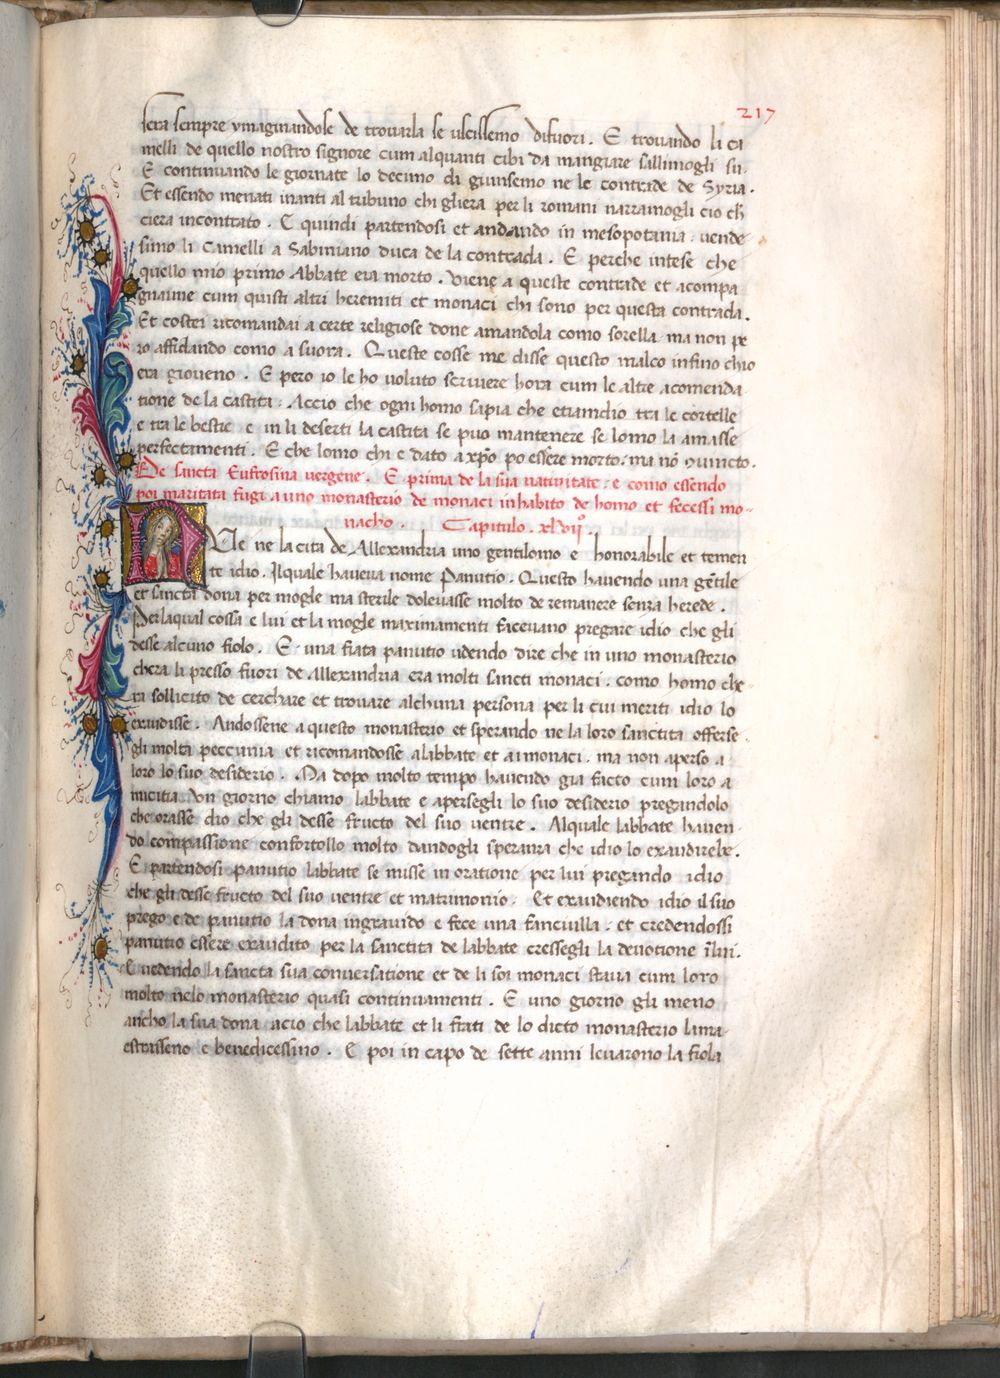 217
sera sempre ymaginandose de trovarla se uscissemo difuori. E trovando li ca
melli de quello nostro signore cum alquanti cibi da mangiare sallimogli su.
E continuando le giornate lo decimo di giunsemo ne le contrade de Syria.
Et essendo menati inanti al tribuno chi ghera per li romani narramogli cio ch̄
ciera incontrato. E quindi partendosi et andando in mesopotamia. uende
simo li Camelli a Sabiniano duca de la contrada. E perche intese che
quello mio primo Abbate era morto. Viene a queste contrade et acompa
gnaime cum quisti altri heremiti et monaci chi sono per questa contrada.
Et costei ricomandai a certe religiose done amandola como sorella. ma non pe
ro affidando como a suora. Queste cosse me disse questo malco infino chio
era gioueno. E pero io le ho voluto scrivere hora cum le altre acomenda
tione de la castita. Accio che ogni homo sapia che etiamdio tra le cortelle
e tra le bestie e in li deserti la castita se puo mantenere se lomo la amasse
perfectamenti. E che lomo chi e dato a xp̄o po essere morto. ma nō vuincto.
De sancta Eufrosina vergene. E prima de la sua nativitate. e como essendo
poi maritata fugi a uno monasterio de monaci in habito de homo et fecessi mo-
nacho. Capitulo. xlvijº
Ele ne la cita de Allexandria uno gentilomo e honorabile et temen
te idio. Ilquale haveva nome Panutio. Questo havendo una gētile
et sancta dona per mogle ma sterile dolevasse molto de remanere senza herede.
Perlaqual cossa e lui et la mogle maximamenti facevano pregare idio che gli
desse alcuno fiolo. E una fiata panutio udendo dire che in uno monasterio
chera li presso fuori de Allexandria era molti sancti monaci. como homo che
ra sollicito de cerchare et trovare alchuna persona per li cui meriti idio lo
exaudisse. Andossene a questo monasterio et sperando ne la loro sanctita offerse
gli molta peccunia et ricomandosse alabbate et ai monaci. ma non aperso a
loro lo suo desiderio. Ma dopo molto tempo havendo gia facto cum loro a
micitia Vn giorno chiamo labbate e apersegli lo suo desiderio pregandolo
che orasse dio che gli desse fructo del suo ventre. Alquale labbate haven
do compassione confortollo molto dandogli speranza che idio lo exaudirebe.
E partendosi panutio labbate se misse in oratione per lui pregando idio
che gli desse fructo del suo ventre et matrimonio. Et exaudiendo idio il suo
prego e de panutio la dona ingravido e fece una fanciulla. et credendossi
panutio essere exaudito per la sanctita de labbate cressegli la devotione
E vedendo la sancta sua conversatione et de li soi monaci stava cum loro
molto nelo monasterio quasi continuamenti. E uno giorno gli meno
ancho la sua dona acio che labbate et li frati de lo dicto monasterio lama
estrasseno e benedicessino. E poi in capo de sette anni levarono la fiola